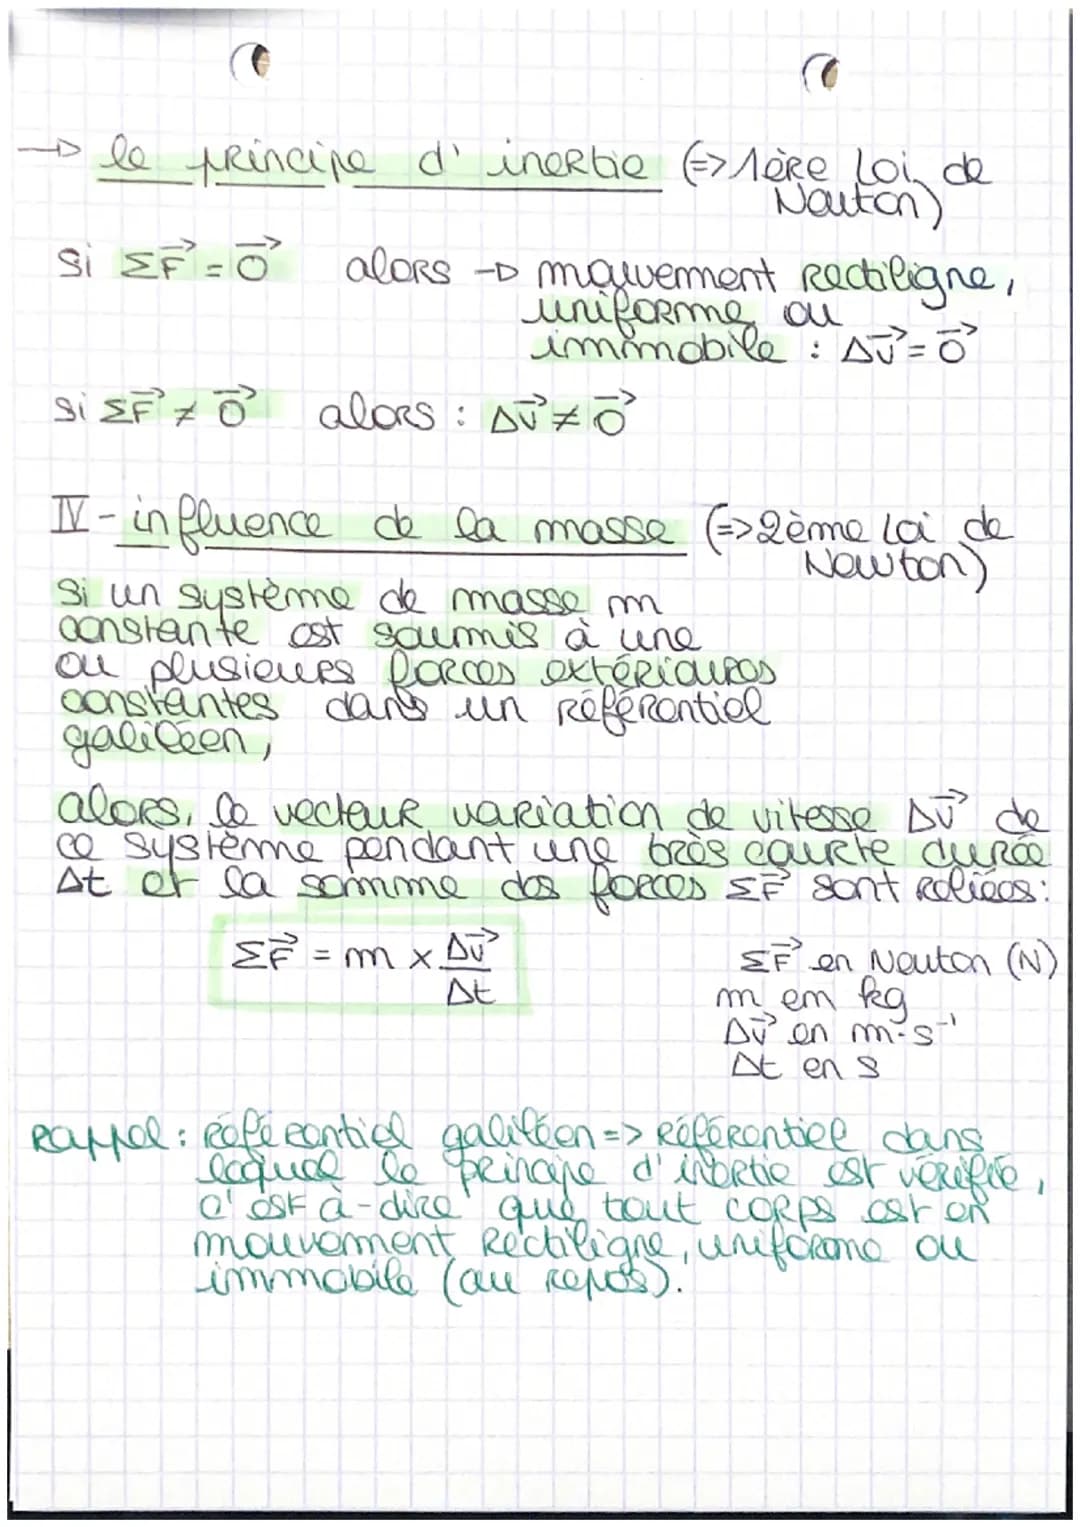 → le principe d'inertie (=> 1ère Loi de
Newton)
si ΣF⃗ = 0⃗ alors → mouvement rectiligne,
uniforme ou
immobile : Δv⃗ = 0⃗
si ΣF⃗ ≠ 0⃗ alors : Δv⃗ ≠ 0⃗
IV - influence de la masse (=> 2ème Loi de
Newton)
Si un système de masse m
constante est soumis à une
ou plusieurs forces extérieures
constantes dans un référentiel
galiléen,
alors, le vecteur variation de vitesse Δv⃗ de
ce système pendant une très courte durée
Δt et la somme des forces ΣF⃗ sont reliées :
ΣF⃗ = m × Δv⃗/Δt
ΣF⃗ en Newton (N)
m en kg
Δv⃗ en m·s⁻¹
Δt en s
Rappel : référentiel galiléen => référentiel dans
lequel le principe d'inertie est vérifié,
c'est-à-dire que tout corps est en
mouvement rectiligne, uniforme ou
immobile (au repos).